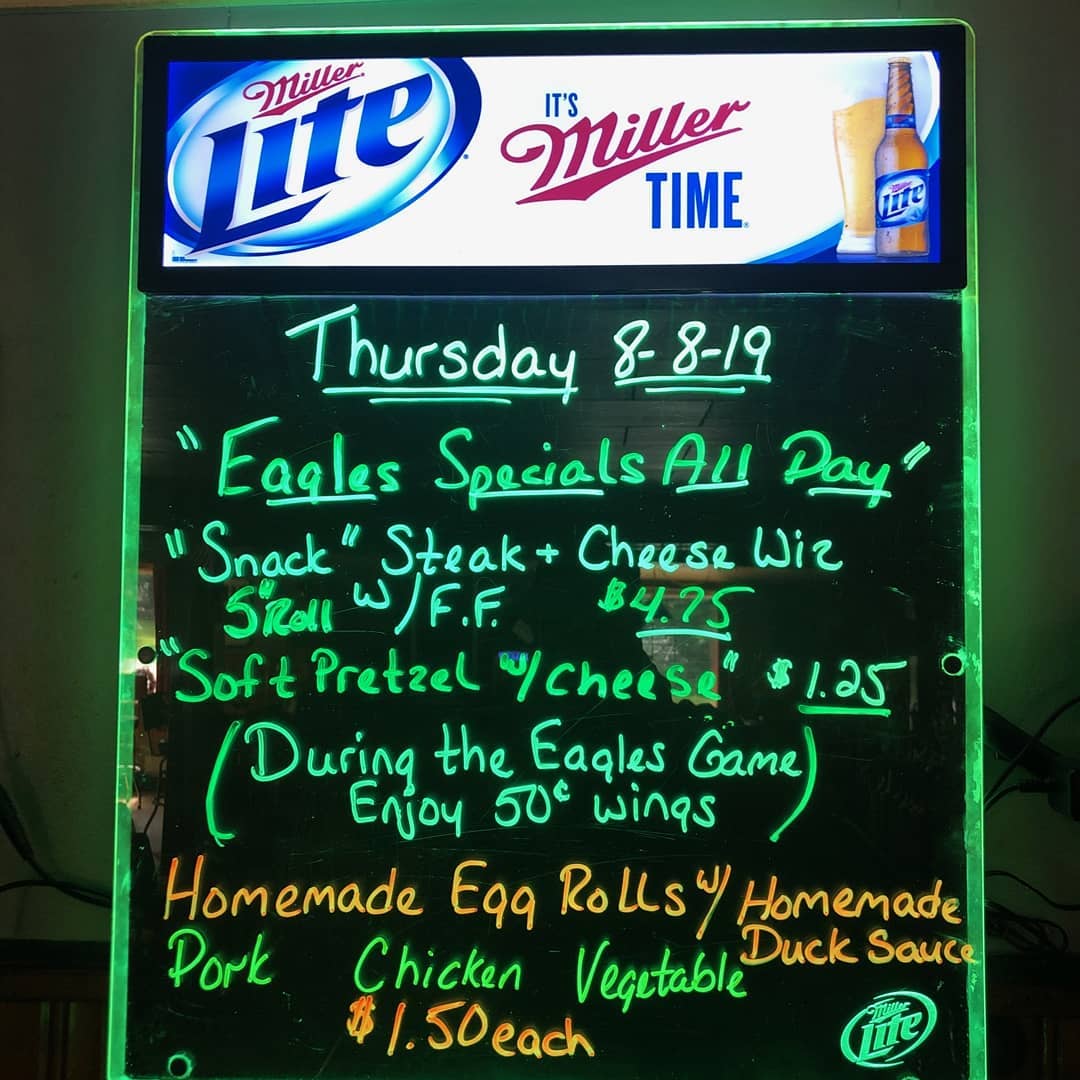 Miller
Lite
IT'S
Miller
TIME
Miller
Lite
Thursday 8-8-19
"Eagles Specials All Day"
"Snack" Steak + Cheese Wiz
5" Roll w/F.F. $4.75
"Soft Pretzel w/cheese" $1.25
(During the Eagles Game)
Enjoy 50¢ wings
Homemade Egg Rolls w/ Homemade
Duck Sauce
Pork Chicken Vegetable
$1.50 each
Miller
Lite